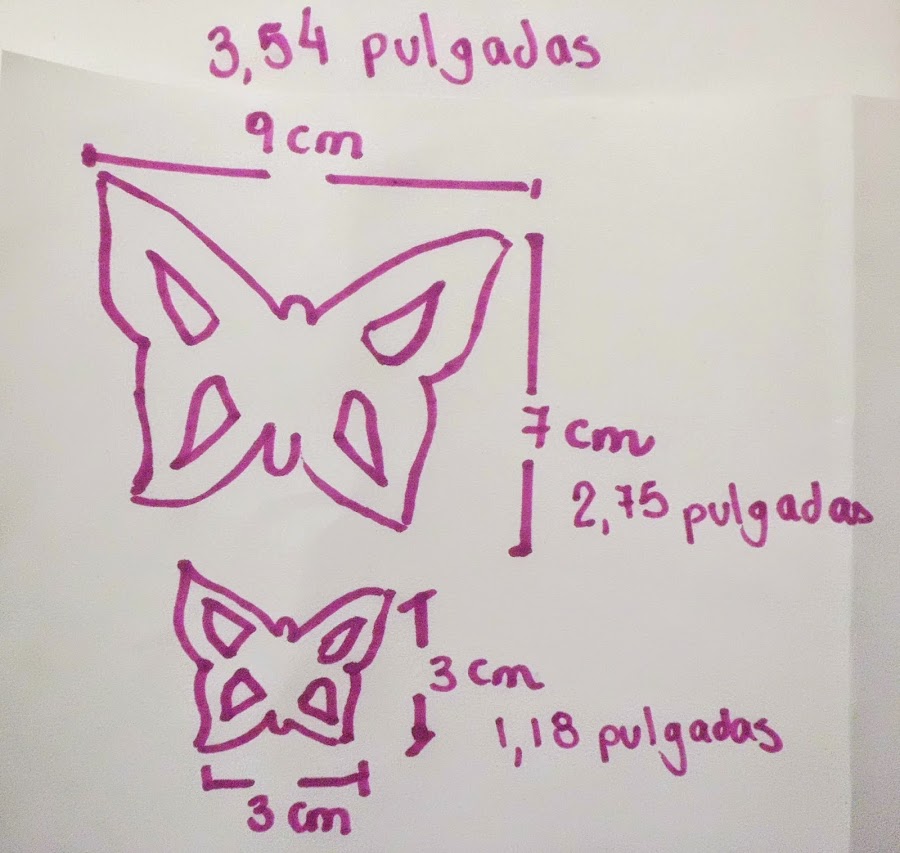 3,54 pulgadas
9 cm
7 cm
2,75 pulgadas
3 cm
1,18 pulgadas
3 cm